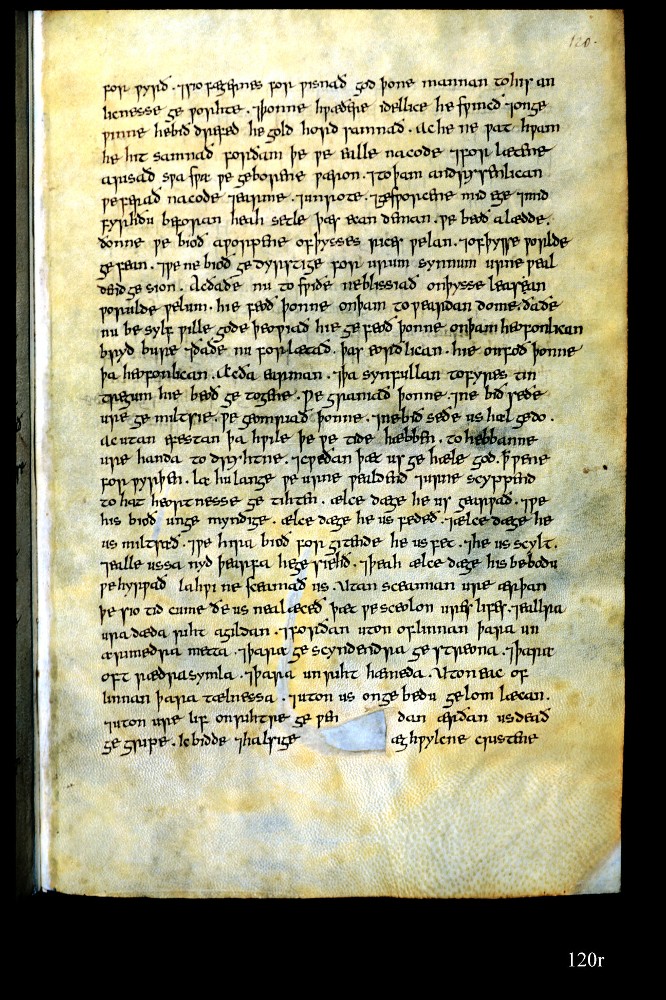 120.
for þyrð . ⁊ sio fægernes for wisnað god þone mannan to his an
licnesse ge worhte . ⁊ þonne hræðre idellice he swinceð ⁊ onge
winne hebið drefed he gold hord samnað . Ac he ne wat hwam
he hit samnað forðam þe we ealle nacode ⁊ for lætene
arisað swa swa we geborene wæron . ⁊ to þam andrysenlican
we ferað nacode ⁊ earme . ⁊ unrote . ⁊ gesworcene mid ege ⁊ mid
fyrhðu beforan heah setle þæs ecan deman . we beoð alædde .
ðonne we bioð aworpene of þysses rices welan . ⁊ of þysse worlde
ge fean . ⁊ we ne bioð ge dyrstige for urum synnum urne weal
dend ge sion . Ac ða ðe nu to swiðe ne blissiað on þysse leasean
worulde welum . hie feoð þonne on þam toweardan dome . ða ðe
nu be sylf wille gode þeowiað hie ge feoð þonne on þam heofonlican
bryd bure ⁊ ða ðe nu forlætað . þas eorðlican . hie onfoð þonne
þa heofonlican . Ac ða earman . ⁊ þa synfullan to fyres tin
tregum hie beoð ge togene . We gramað þonne . ⁊ ne bið se ðe
ure ge miltsie . we geomriað þonne . ⁊ ne bið se ðe us hæl gedo .
Ac utan efestan þa hwile þe we tide hæbben . to hebbanne
ure handa to dryhtne . ⁊ cweðan þæt us ge hæle god . þ we ne
for wyrþen . La hu lange we urne wealdend ⁊ urne scyppend
to hat heortnesse ge tihten . ælce dæge he us gearwað . ⁊ we
his bioð unge myndige . ælce dæge he us fedeð . ⁊ ælce dæge he
us miltsað . ⁊ we hira bioð for gitende he us rec . ⁊ he us scylt .
⁊ ealle ussa nyd þearfa he ge riehð . ⁊ þeah ælce dæge his bebodu
we hyrwað la hwi ne sceamað us . Utan sceamian ure ærþan
þe sio tid cume ðe us nealæceð þæt we sceolon ures lifes . ⁊ eallra
ura dæda riht agildan . ⁊ forðan uton of linnan þara un
ærimedra meta . ⁊ þara ge scyndendra ge streona . ⁊ þara
oft rædra symla . ⁊ þara unriht hæmeda . Uton eac of
linnan þara tælnessa . ⁊ uton us on ge bedu gelom læcan .
⁊ uton ure lif on rihtre ge wen dan ærðan us deað
ge gripe . Ic bidde ⁊ halsige æghwylcne cristene
120r